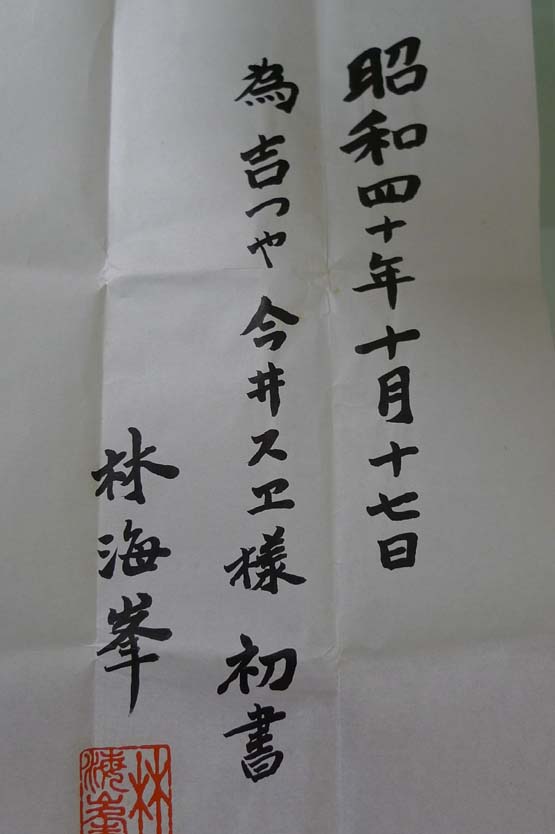 昭和四十年十月十七日
為吉つや 今井スヱ様 初書
林海峯
林海峯